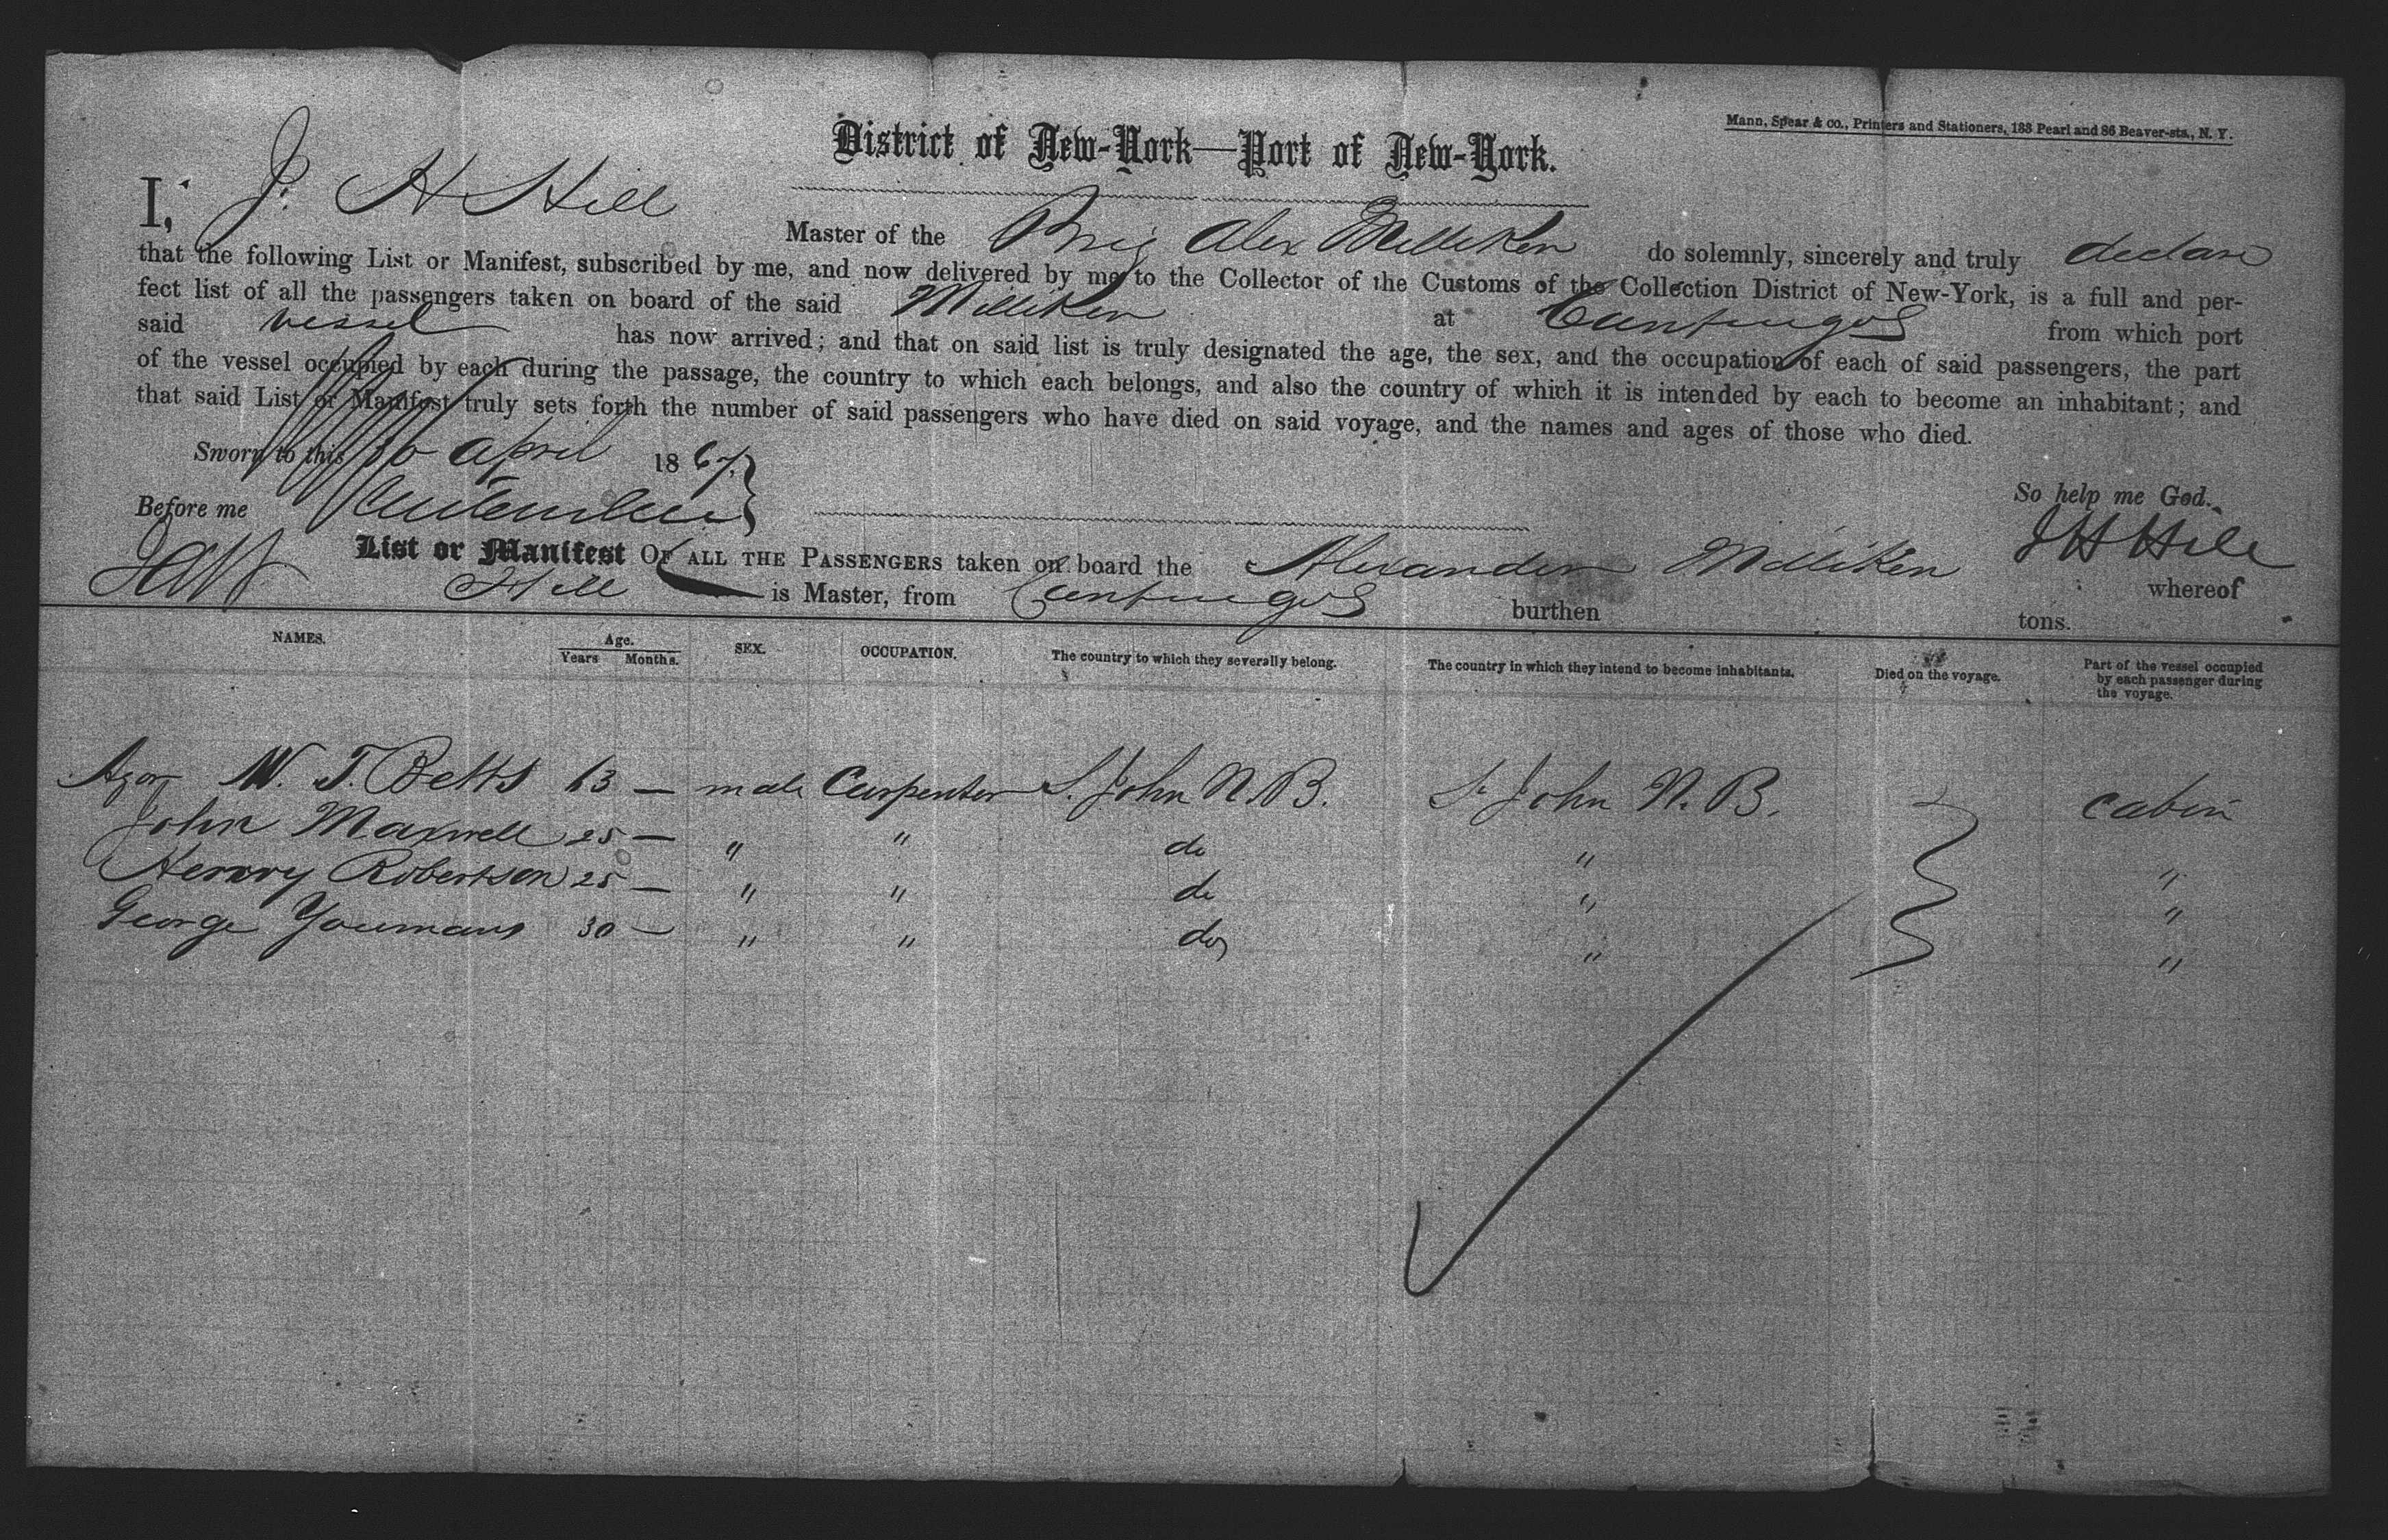 Mann, Spear & co., Printers and Stationers, 133 Pearl and 86 Beaver-sts., N. Y.
District of New-York—Port of New-York.
I, J. H Hill Master of the Brig Alex Milliken do solemnly, sincerely and truly declare
that the following List or Manifest, subscribed by me, and now delivered by me to the Collector of the Customs of the Collection District of New-York, is a full and per-
fect list of all the passengers taken on board of the said Milliken at Cienfuegos from which port
said vessel has now arrived; and that on said list is truly designated the age, the sex, and the occupation of each of said passengers, the part
of the vessel occupied by each during the passage, the country to which each belongs, and also the country of which it is intended by each to become an inhabitant; and
that said List or Manifest truly sets forth the number of said passengers who have died on said voyage, and the names and ages of those who died.
Sworn to this April 1867.
So help me God.
Before me
J H Hill
List or Manifest OF ALL THE PASSENGERS taken on board the Alexander Milliken whereof
Hill is Master, from Cienfuegos burthen tons.
NAMES. Age. Years Months. SEX. OCCUPATION. The country to which they severally belong. The country in which they intend to become inhabitants. Died on the voyage. Part of the vessel occupied by each passenger during the voyage.
Azor W. T. Betts 63 — male Carpenter St. John N.B. St John N. B. cabin
John Maxwell 25 — " " do " "
Henry Robertson 25 — " " do " "
George Youmans 30 — " " do " "